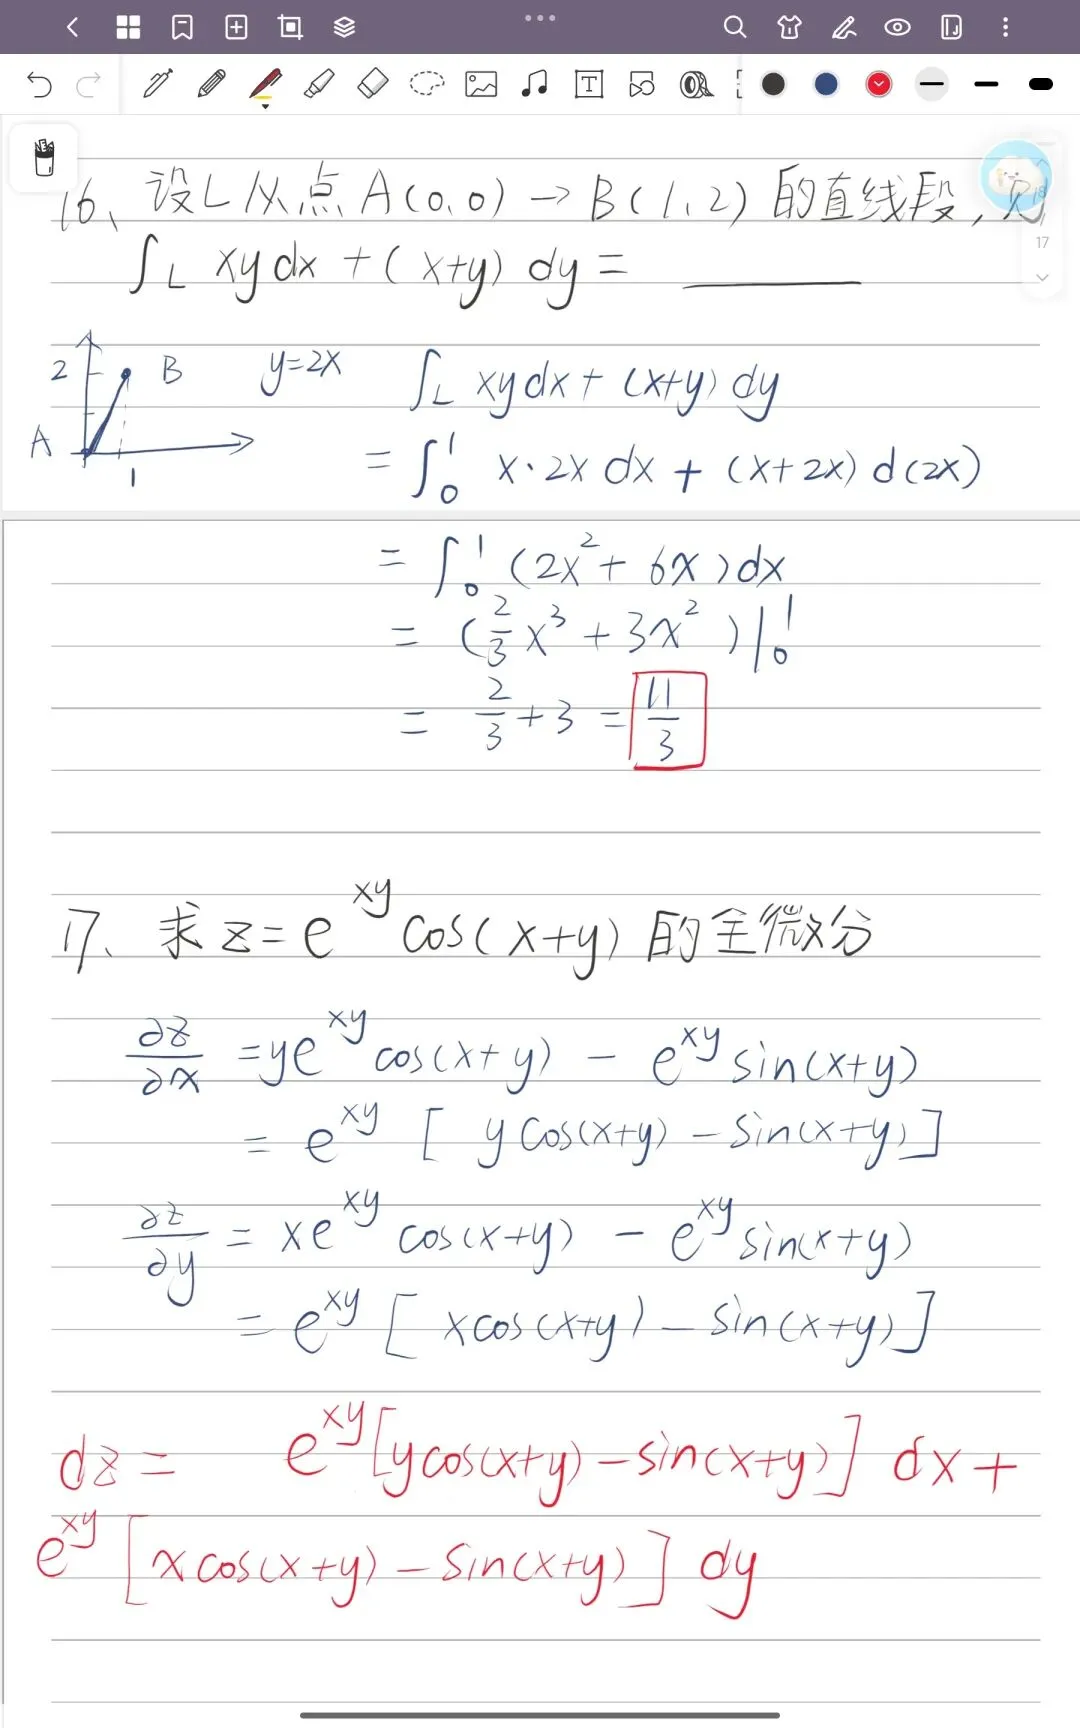 16、设L从点A(0,0)→B(1,2)的直线段,则
∫L xydx+(x+y)dy=______
2
B
A
1
y=2x
∫L xydx+(x+y)dy
=∫₀¹ x·2x dx+(x+2x)d(2x)
17
=∫₀¹(2x²+6x)dx
=(2/3x³+3x²)|₀¹
=2/3+3=11/3
17、求z=e^xy cos(x+y)的全微分
∂z/∂x=ye^xy cos(x+y)-e^xy sin(x+y)
=e^xy[ycos(x+y)-sin(x+y)]
∂z/∂y=xe^xy cos(x+y)-e^xy sin(x+y)
=e^xy[xcos(x+y)-sin(x+y)]
dz=e^xy[ycos(x+y)-sin(x+y)]dx+
e^xy[xcos(x+y)-sin(x+y)]dy